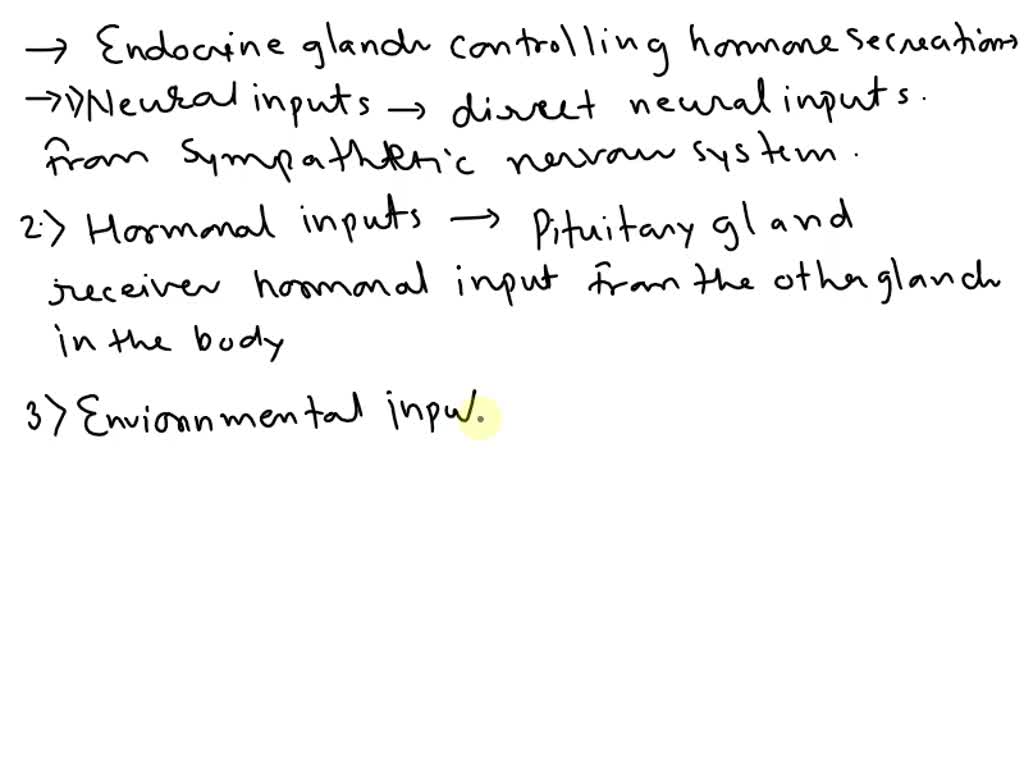 → Endocrine glands controlling hormone secreations
→ 1) Neural inputs → direct neural inputs.
from sympathetic nervous system.
2.) Hormonal inputs → Pituitary gland
receives hormonal input from the other glands
in the body
3) Envionnmental input.